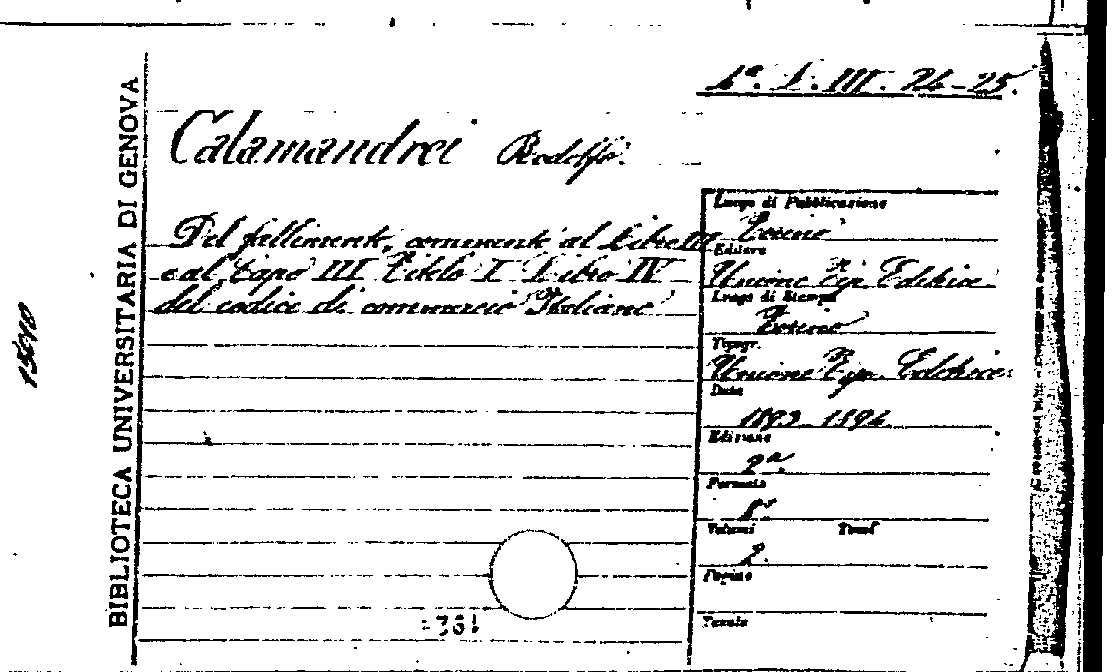 BIBLIOTECA UNIVERSITARIA DI GENOVA
L. III. 24-25.
Calamandrei Rodolfo.
Del fallimento, commento al Libro III
e al Capo III Titolo I Libro IV
del codice di commercio Italiano
Luogo di Pubblicazione
Torino
Editore
Unione Tip. Editrice
Luogo di Stampa
Torino
Tipogr.
Unione Tip. Editrice
Data
1893-1894
Edizione
2a
Formato
8°
Volumi Tomi
2.
Pagine
Tavole